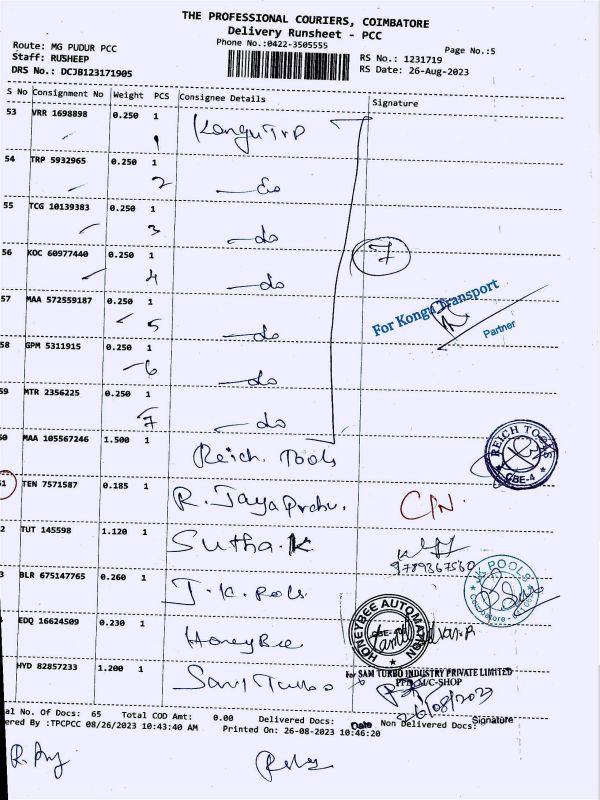 THE PROFESSIONAL COURIERS, COIMBATORE
Delivery Runsheet - PCC
Phone No.:0422-3505555
Page No.:5
Route: MG PUDUR PCC
Staff: RUSHEEP
DRS No.: DCJB123171905
RS No.: 1231719
RS Date: 26-Aug-2023
S No Consignment No Weight PCS Consignee Details Signature
53 VRR 1698898 0.250 1 Kongu TrP
1
54 TRP 5932965 0.250 1
2 do
55 TCG 10139383 0.250 1
3 do
56 KOC 60977440 0.250 1 7
4 do
57 MAA 572559187 0.250 1 For Kongu Transport
5 do Partner
58 GPM 5311915 0.250 1
6 do
59 MTR 2356225 0.250 1
7 do
60 MAA 105567246 1.500 1 Reich. Tools REICH TOOLS CBE-4
61 TEN 7571587 0.185 1 R. Jayaprabu. C/N.
2 TUT 145598 1.120 1 Sutha.K
9789367560
3 BLR 675147765 0.260 1 J.K. Pools JK POOLS
EDQ 16624509 0.230 1 HoneyBee HONEYBEE AUTOMATION
HYD 82857233 1.200 1 Sam Turbo For SAM TURBO INDUSTRY PRIVATE LIMITED
M/C-SHOP
26/08/2023
al No. Of Docs: 65 Total COD Amt: 0.00 Delivered Docs: Date Non Delivered Docs: Signature
ered By :TPCPCC 08/26/2023 10:43:40 AM Printed On: 26-08-2023 10:46:20